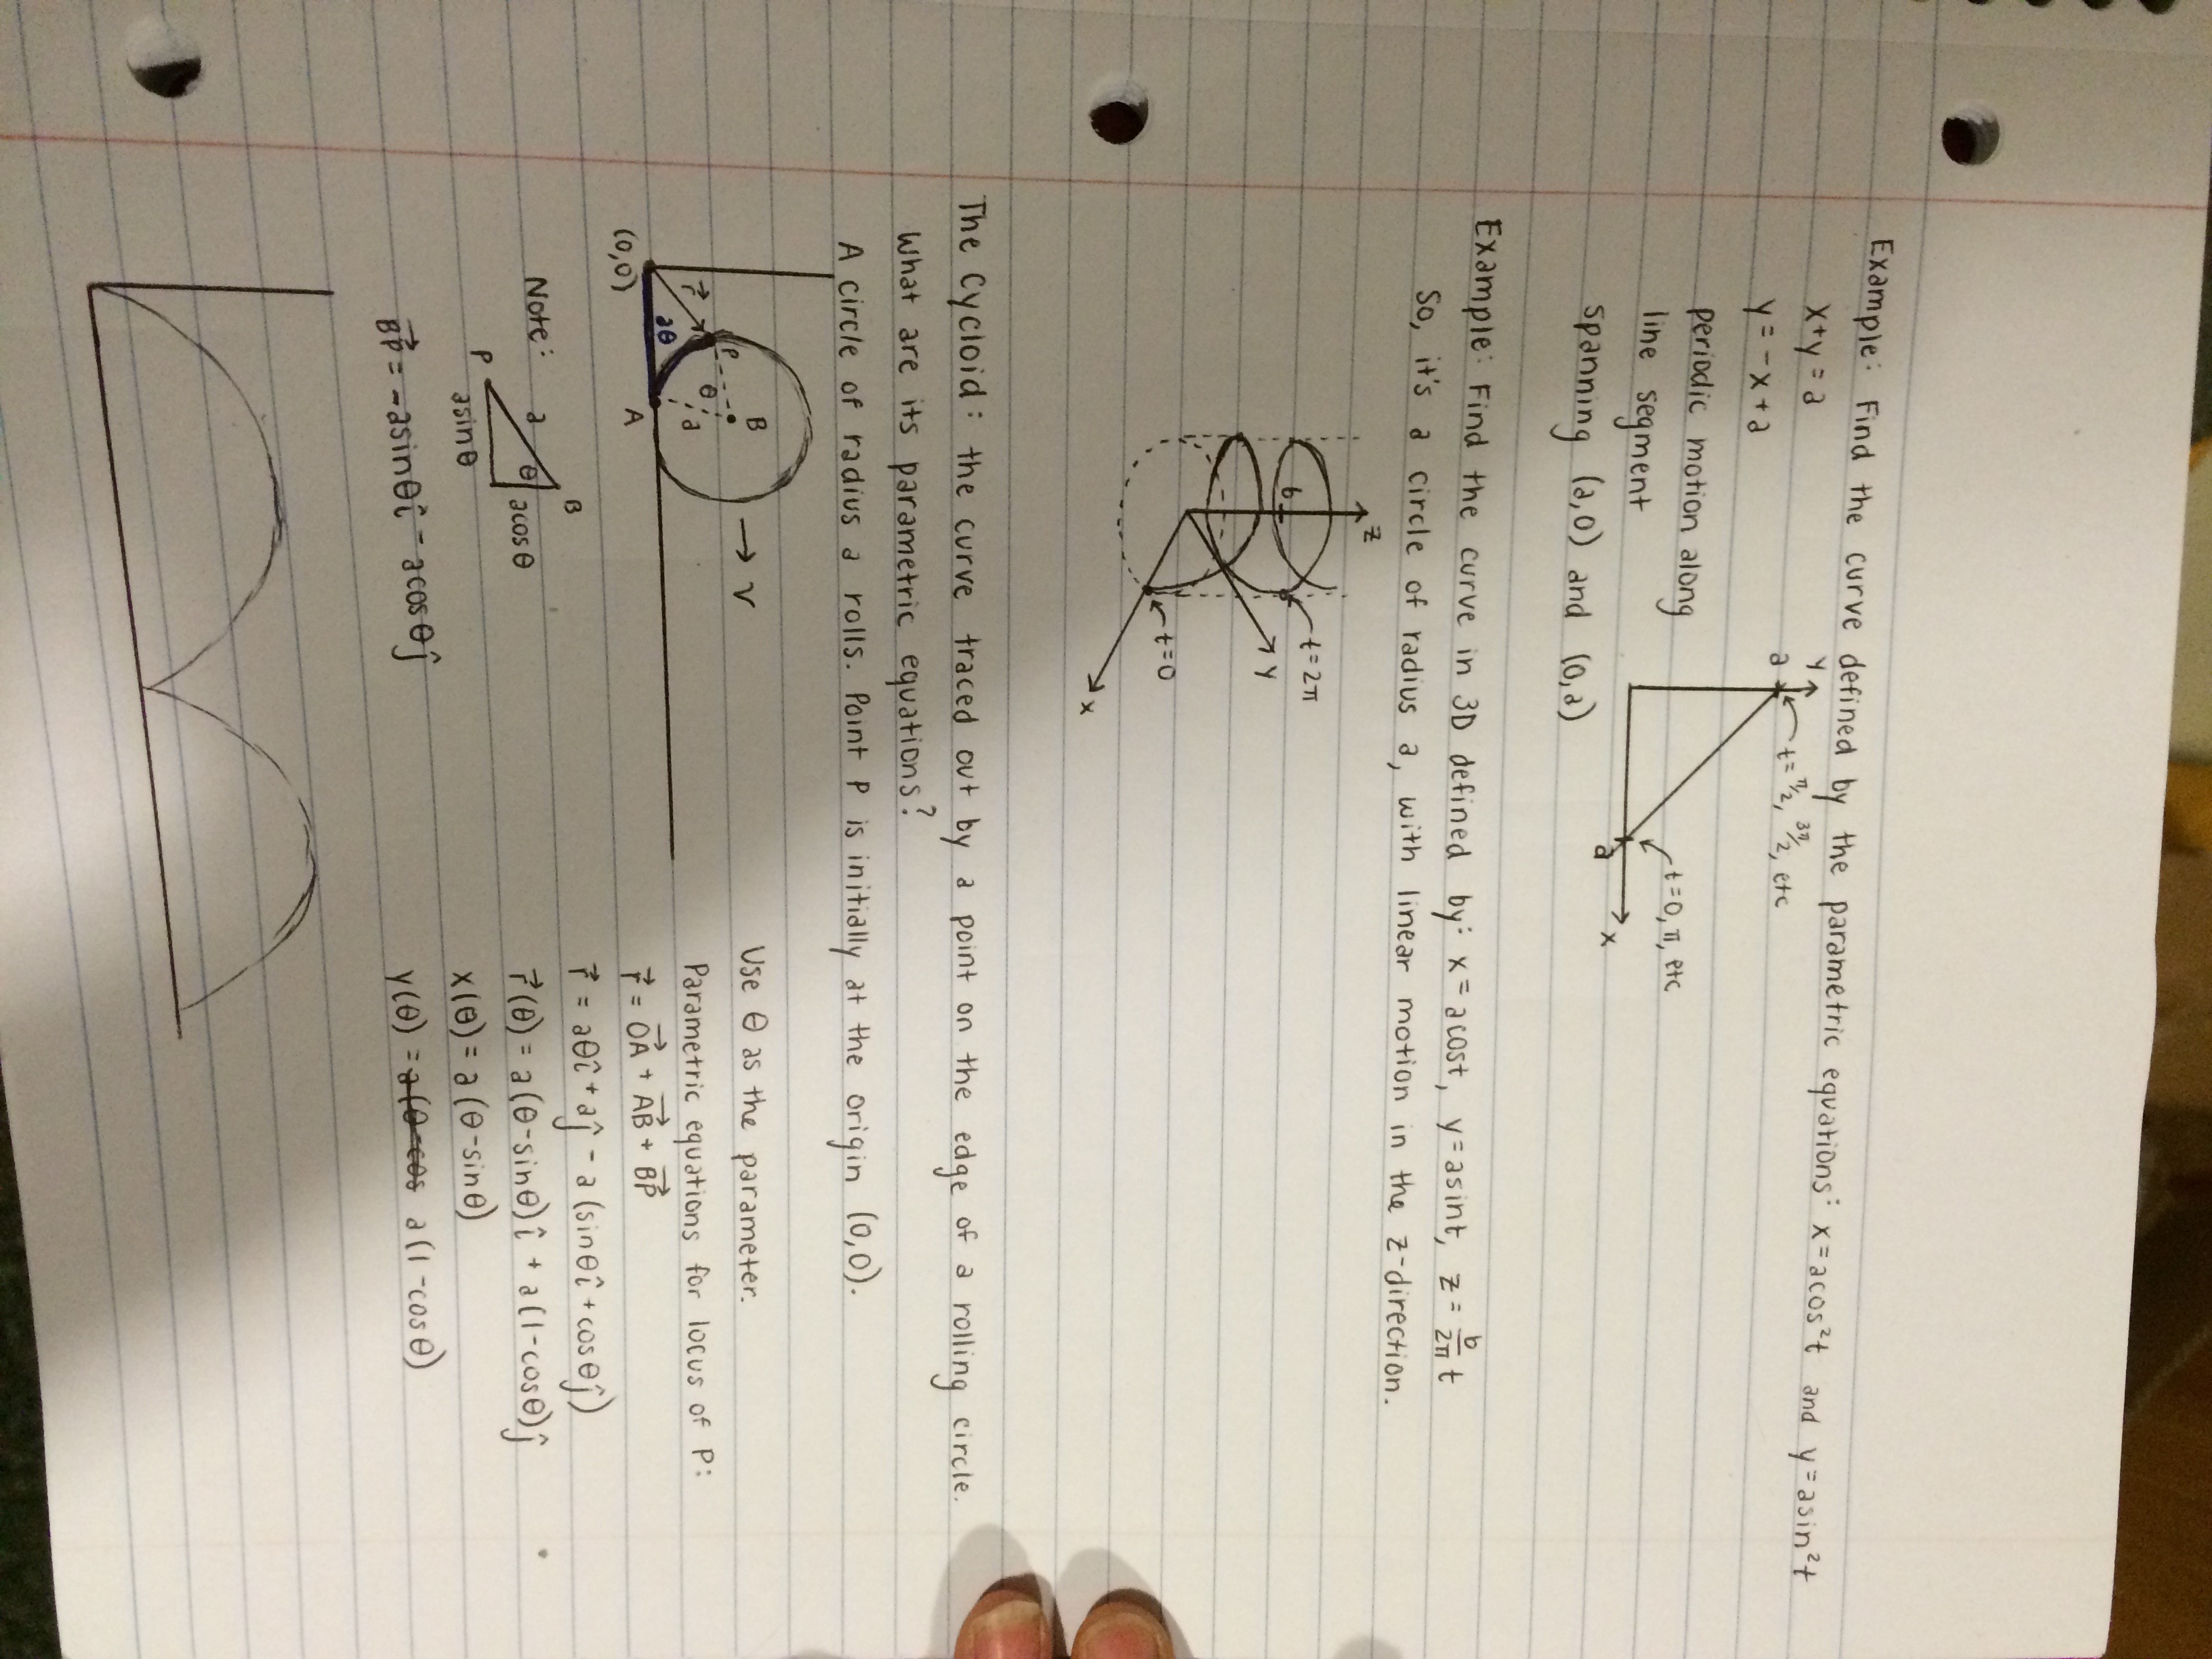 Example: Find the curve defined by the parametric equations: x = acos²t and y = asin²t
x+y = a
y = -x + a
periodic motion along
line segment
spanning (a,0) and (0,a)
y
a
t = π/2, 3π/2, etc
t = 0, π, etc
a
x
Example: Find the curve in 3D defined by: x = acost, y = asint, z = b/2π t
So, it's a circle of radius a, with linear motion in the z-direction.
z
b
t = 2π
y
t = 0
x
The Cycloid: the curve traced out by a point on the edge of a rolling circle.
What are its parametric equations?
A circle of radius a rolls. Point P is initially at the origin (0,0).
B
→ v
P
θ
a
r⃗
aθ
(0,0)
A
Use θ as the parameter.
Parametric equations for locus of P:
r⃗ = OA⃗ + AB⃗ + BP⃗
r⃗ = aθî + aĵ - a(sinθî + cosθĵ)
r⃗(θ) = a(θ-sinθ)î + a(1-cosθ)ĵ
x(θ) = a(θ-sinθ)
y(θ) = a(θ-cos a(1-cosθ)
Note:
B
a
θ
acosθ
P
asinθ
BP⃗ = -asinθî - acosθĵ